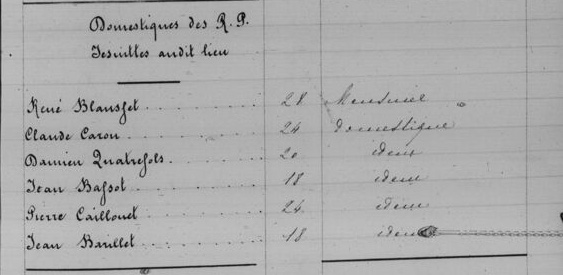 Domestiques des R. P.
Jesuittes audit lieu
René Blansset 28 Menusier
Claude Caron 24 domestique
Damien Quatresols 20 idem
Jean Bassot 18 idem
Pierre Caillouet 24 idem
Jean Barillet 18 idem